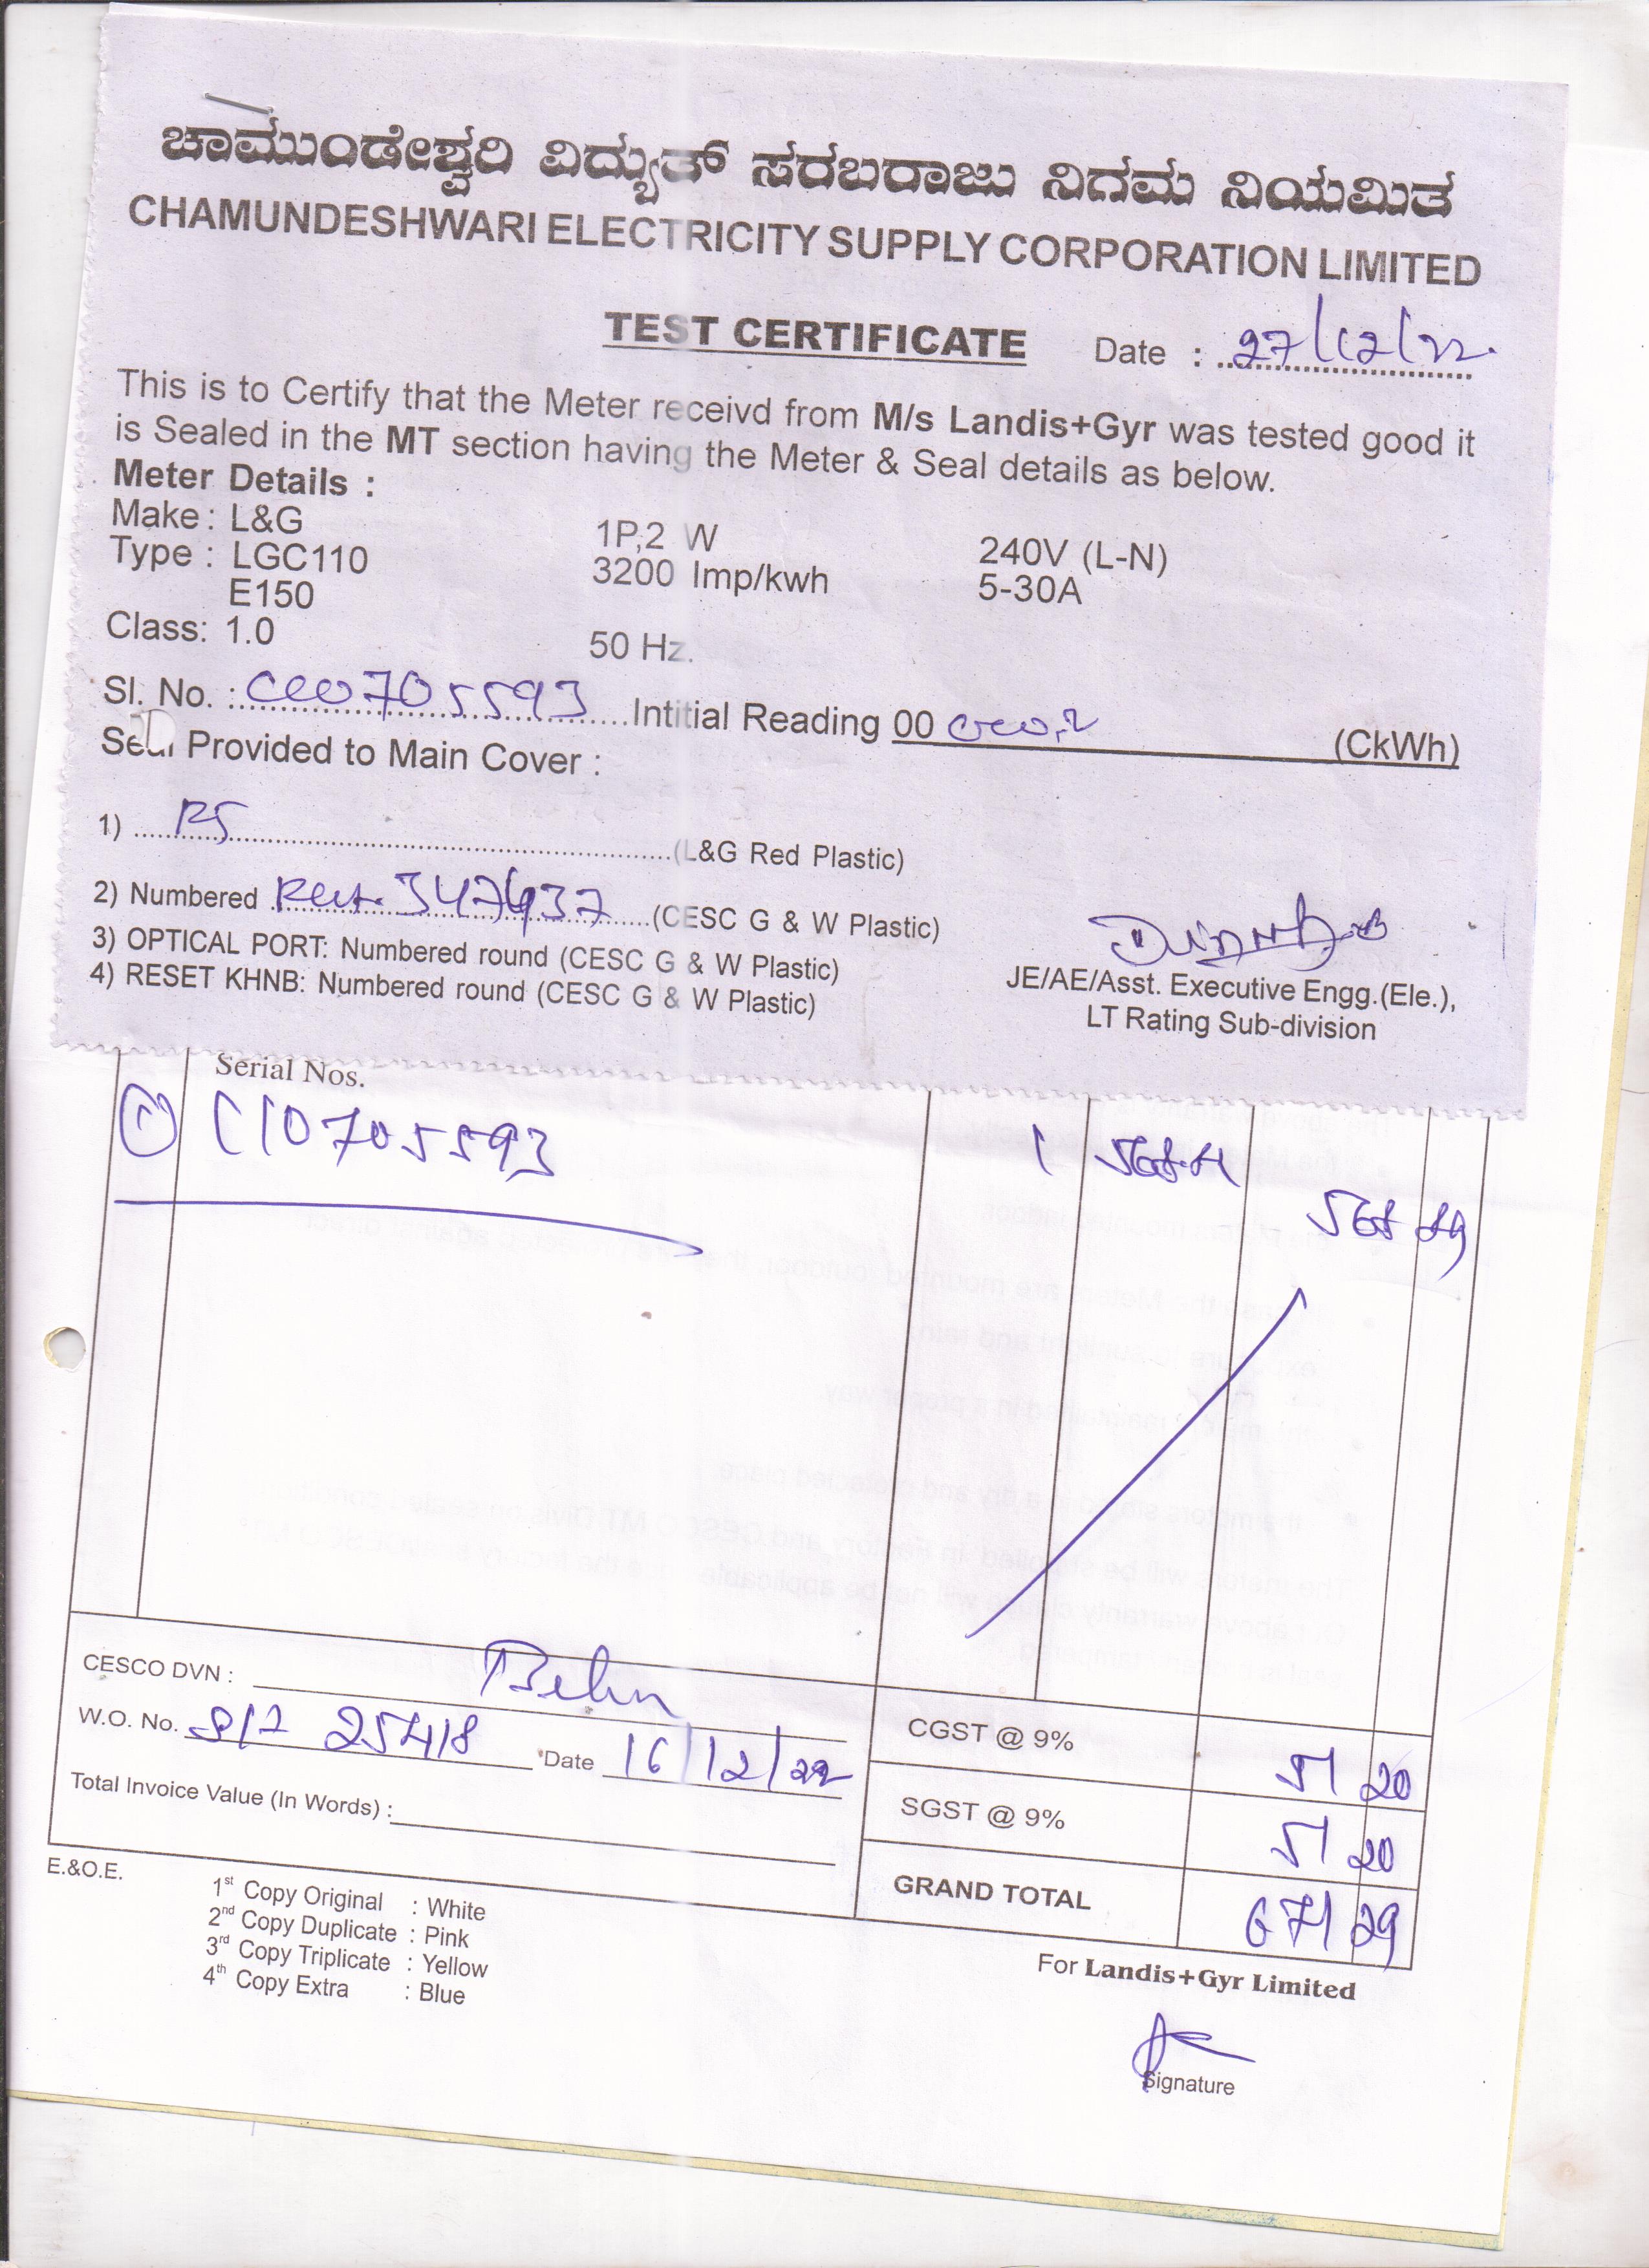 ಚಾಮುಂಡೇಶ್ವರಿ ವಿದ್ಯುತ್ ಸರಬರಾಜು ನಿಗಮ ನಿಯಮಿತ
CHAMUNDESHWARI ELECTRICITY SUPPLY CORPORATION LIMITED
TEST CERTIFICATE Date : 27/12/22
This is to Certify that the Meter receivd from M/s Landis+Gyr was tested good it
is Sealed in the MT section having the Meter & Seal details as below.
Meter Details :
Make : L&G 1P,2 W 240V (L-N)
Type : LGC110 3200 Imp/kwh 5-30A
E150
Class: 1.0 50 Hz.
Sl. No. : 705593 Intitial Reading 00 (CkWh)
Seal Provided to Main Cover :
1) (L&G Red Plastic)
2) Numbered (CESC G & W Plastic)
3) OPTICAL PORT: Numbered round (CESC G & W Plastic)
4) RESET KHNB: Numbered round (CESC G & W Plastic)
JE/AE/Asst. Executive Engg.(Ele.),
LT Rating Sub-division
Serial Nos.
1 C110705593 1
CESCO DVN :
W.O. No. 25418 Date 16/12/22
Total Invoice Value (In Words) :
CGST @ 9% 51 20
SGST @ 9% 51 20
GRAND TOTAL 671 29
E.&O.E.
1st Copy Original : White
2nd Copy Duplicate : Pink
3rd Copy Triplicate : Yellow
4th Copy Extra : Blue
For Landis+Gyr Limited
Signature